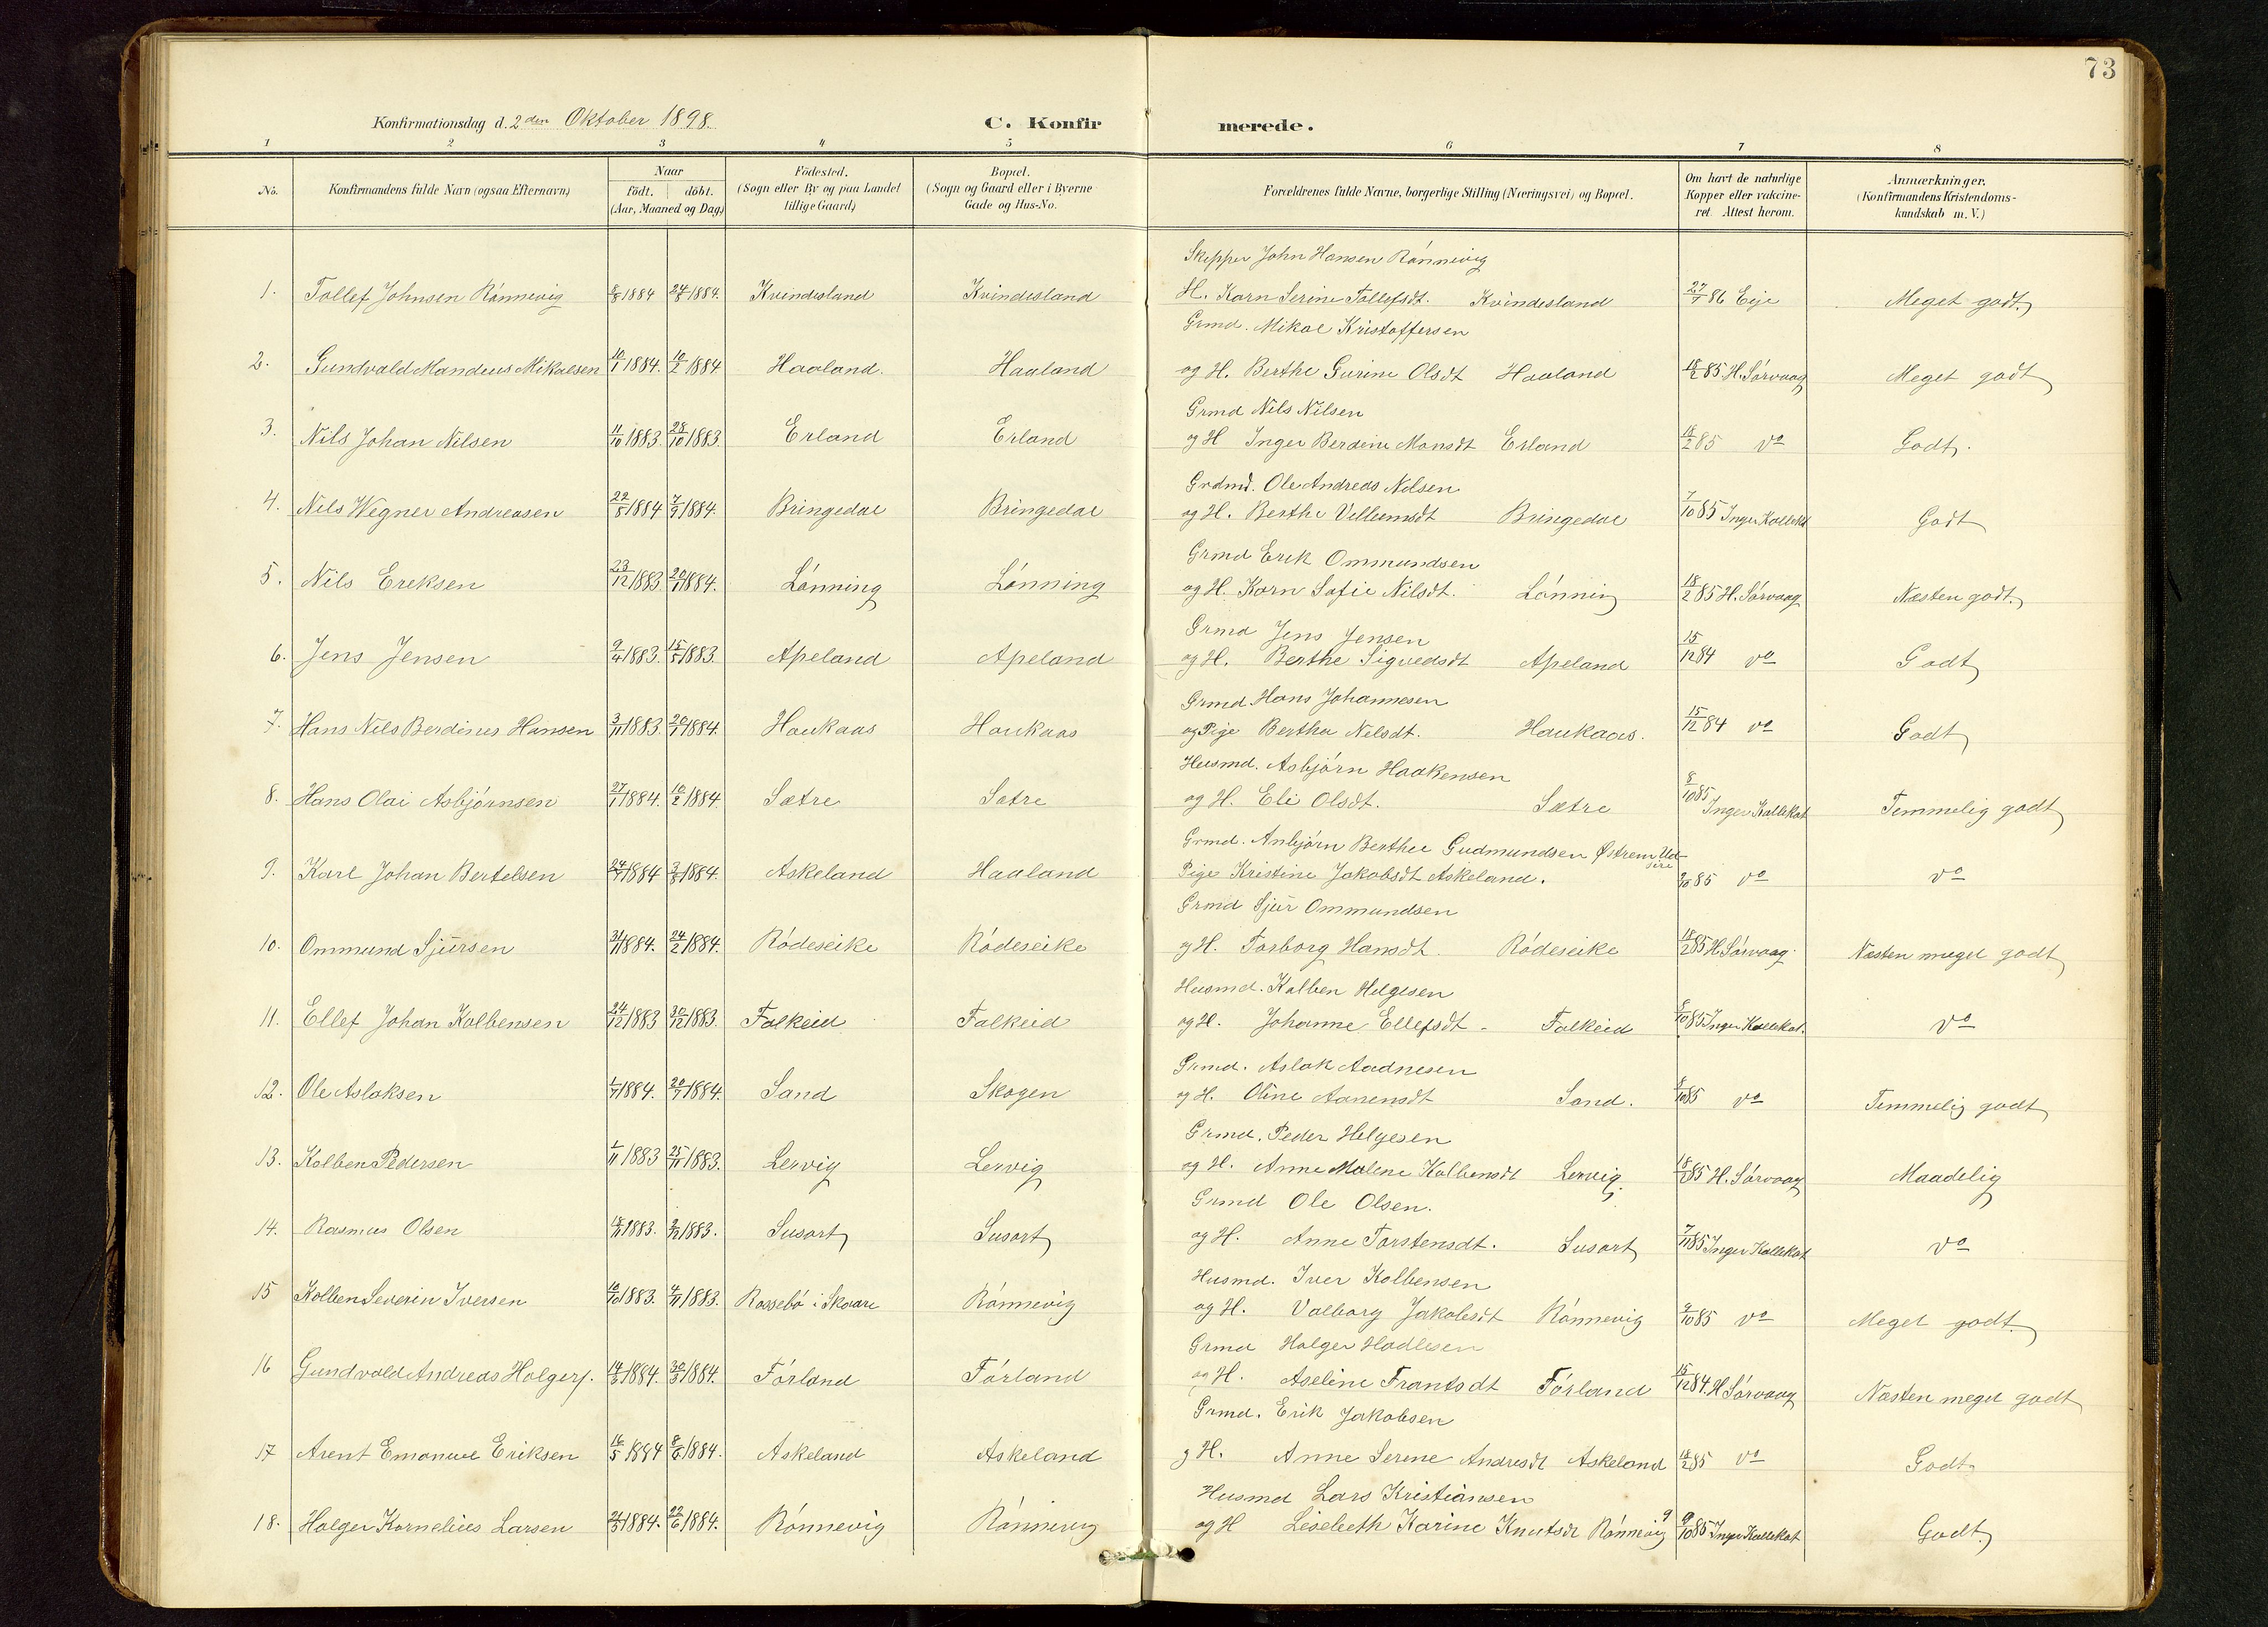 73
Konfirmationsdag d. 2den Oktober 1898. C. Konfirmerede.
1 2 3 4 5 6 7 8
No. Konfirmandens fulde Navn (ogsaa Efternavn) Naar födt. döbt. (Aar, Maaned og Dag) Födested. (Sogn eller By og paa Landet tillige Gaard) Bopæl. (Sogn og Gaard eller i Byerne Gade og Hus-No. Forældrenes fulde Navne, borgerlige Stilling (Næringsvei) og Bopæl. Om havt de naturlige Kopper eller vaccineret. Attest herom. Anmærkninger. (Konfirmandens Kristendomskundskab m. V.)
Skipper John Hansen Rönnevig
1. Tollef Johnsen Rönnevig 1884 24/8 1884. Kvindesland Kvindesland H. Karn Serine Tollefsdt. Kvindesland 27/7 86 Eije Meget godt.
Grmd. Mikal Kristoffersen
2. Gundvald Mandeus Mikalsen 10/1 1884. 10/2 1884 Haaland. Haaland og H. Berthe Gurine Olsdt Haaland 18/2 85 H. Sörvaag Meget godt
Grmd Nils Nilsen
3. Nils Johan Nilsen 11/10 1883. 28/10 1883. Erland Erland og H Inger Berdine Monsdt Erland 18/2 85 do Godt.
Grdmd. Ole Andreas Nilsen
4. Nils Wegner Andreasen 22/8 1884 7/9 1884. Bringedal Bringedal og H. Berthe Villumsdt Bringedal 7/10 85 Inger Kallekot Godt
Grmd Erik Ommundsen
5. Nils Ereksen 23/12 1883. 20/1 1884. Lönning Lönning og H. Karn Sofie Nilsdt. Lönning 18/2 85 H. Sörvaag Næsten godt.
Grmd Jens Jensen
6. Jens Jensen 9/4 1883. 15/5 1883. Apeland Apeland og H. Berthe Sigvedsdt Apeland 15/12 84 do Godt
Grmd. Hans Johannesen
7. Hans Nils Berdines Hansen 3/11 1883. 20/1 1884. Haukaas Haukaas og Pige Bertha Nilsdt. Haukaas. 15/12 84 do Godt
Husmd. Asbjörn Haakensen
8. Hans Olai Asbjörnsen 27/1 1884. 10/2 1884. Sætre Sætre og H. Eli Olsdt. Sætre 8/10 85 Inger Kallekot Temmelig godt
Grmd. Anbjörn Berthel Gudmundsen Østrem Udsire
9. Karl Johan Bertelsen 1884 3/8 1884. Askeland Haaland Pige Kristine Jakobsdt Askeland. 9/10 85 do do
Grmd Sjur Ommundsen
10. Ommund Sjursen 1884. 24/2 1884. Rödeseike Rödeseike og H. Torborg Hansdt. Rödeseike 18/2 85 H. Sörvaag. Næsten meget godt
Husmd. Kolben Helgesen
11. Ellef Johan Kolbensen 24/12 1883 30/12 1883. Falkeid Falkeid og H. Johanne Ellefsdt - Falkeid 8/10 85 Inger Kallekot. do
Grmd. Aslak Aadnesen
12. Ole Aslaksen 1884. 20/7 1884. Sand Skogen og H. Oline Aanensdt Sand. 8/10 85 do Temmelig godt
Grmd. Peder Helgesen
13. Kolben Pedersen 1/11 1883 25/11 1883. Lervig Lervig og H. Anne Malene Kolbensdt Lervig. 18/2 85 H. Sörvaag Maadelig
Grmd Ole Olsen.
14. Rasmus Olsen 18/11 1883. 2/12 1883. Susort Susort og H. Anne Torstensdt. Susort 85 Inger Kallekot do
Husmd. Iver Kolbensen
15 Kolben Severin Iversen 10/10 1883. 4/11 1883. Rossebö i Skaare Rönnevig og H. Valborg Jakobsdt Rönnevig 9/10 85 do Meget godt.
Grmd Holger Hadlesen
16 Gundvald Andreas Holgers. 1884. 30/3 1884. Förland Förland og H. Aseline Frantsdt Förland 15/12 84. H Sörvaag Næsten meget godt
Grmd. Erik Jakobsen
17 Arent Emanuel Eriksen 16/5 1884 8/6 1884. Askeland Askeland og H. Anne Serene Andresdt Askeland 18/2 85 do Godt.
Husmd Lars Kristiansen
18. Holger Kornelius Larsen 1884. 22/6 1884. Rönnevig Rönnevig og H Lisebeth Karine Knutsdt Rönnevig 9/10 85 Inger Kallekot Godt.